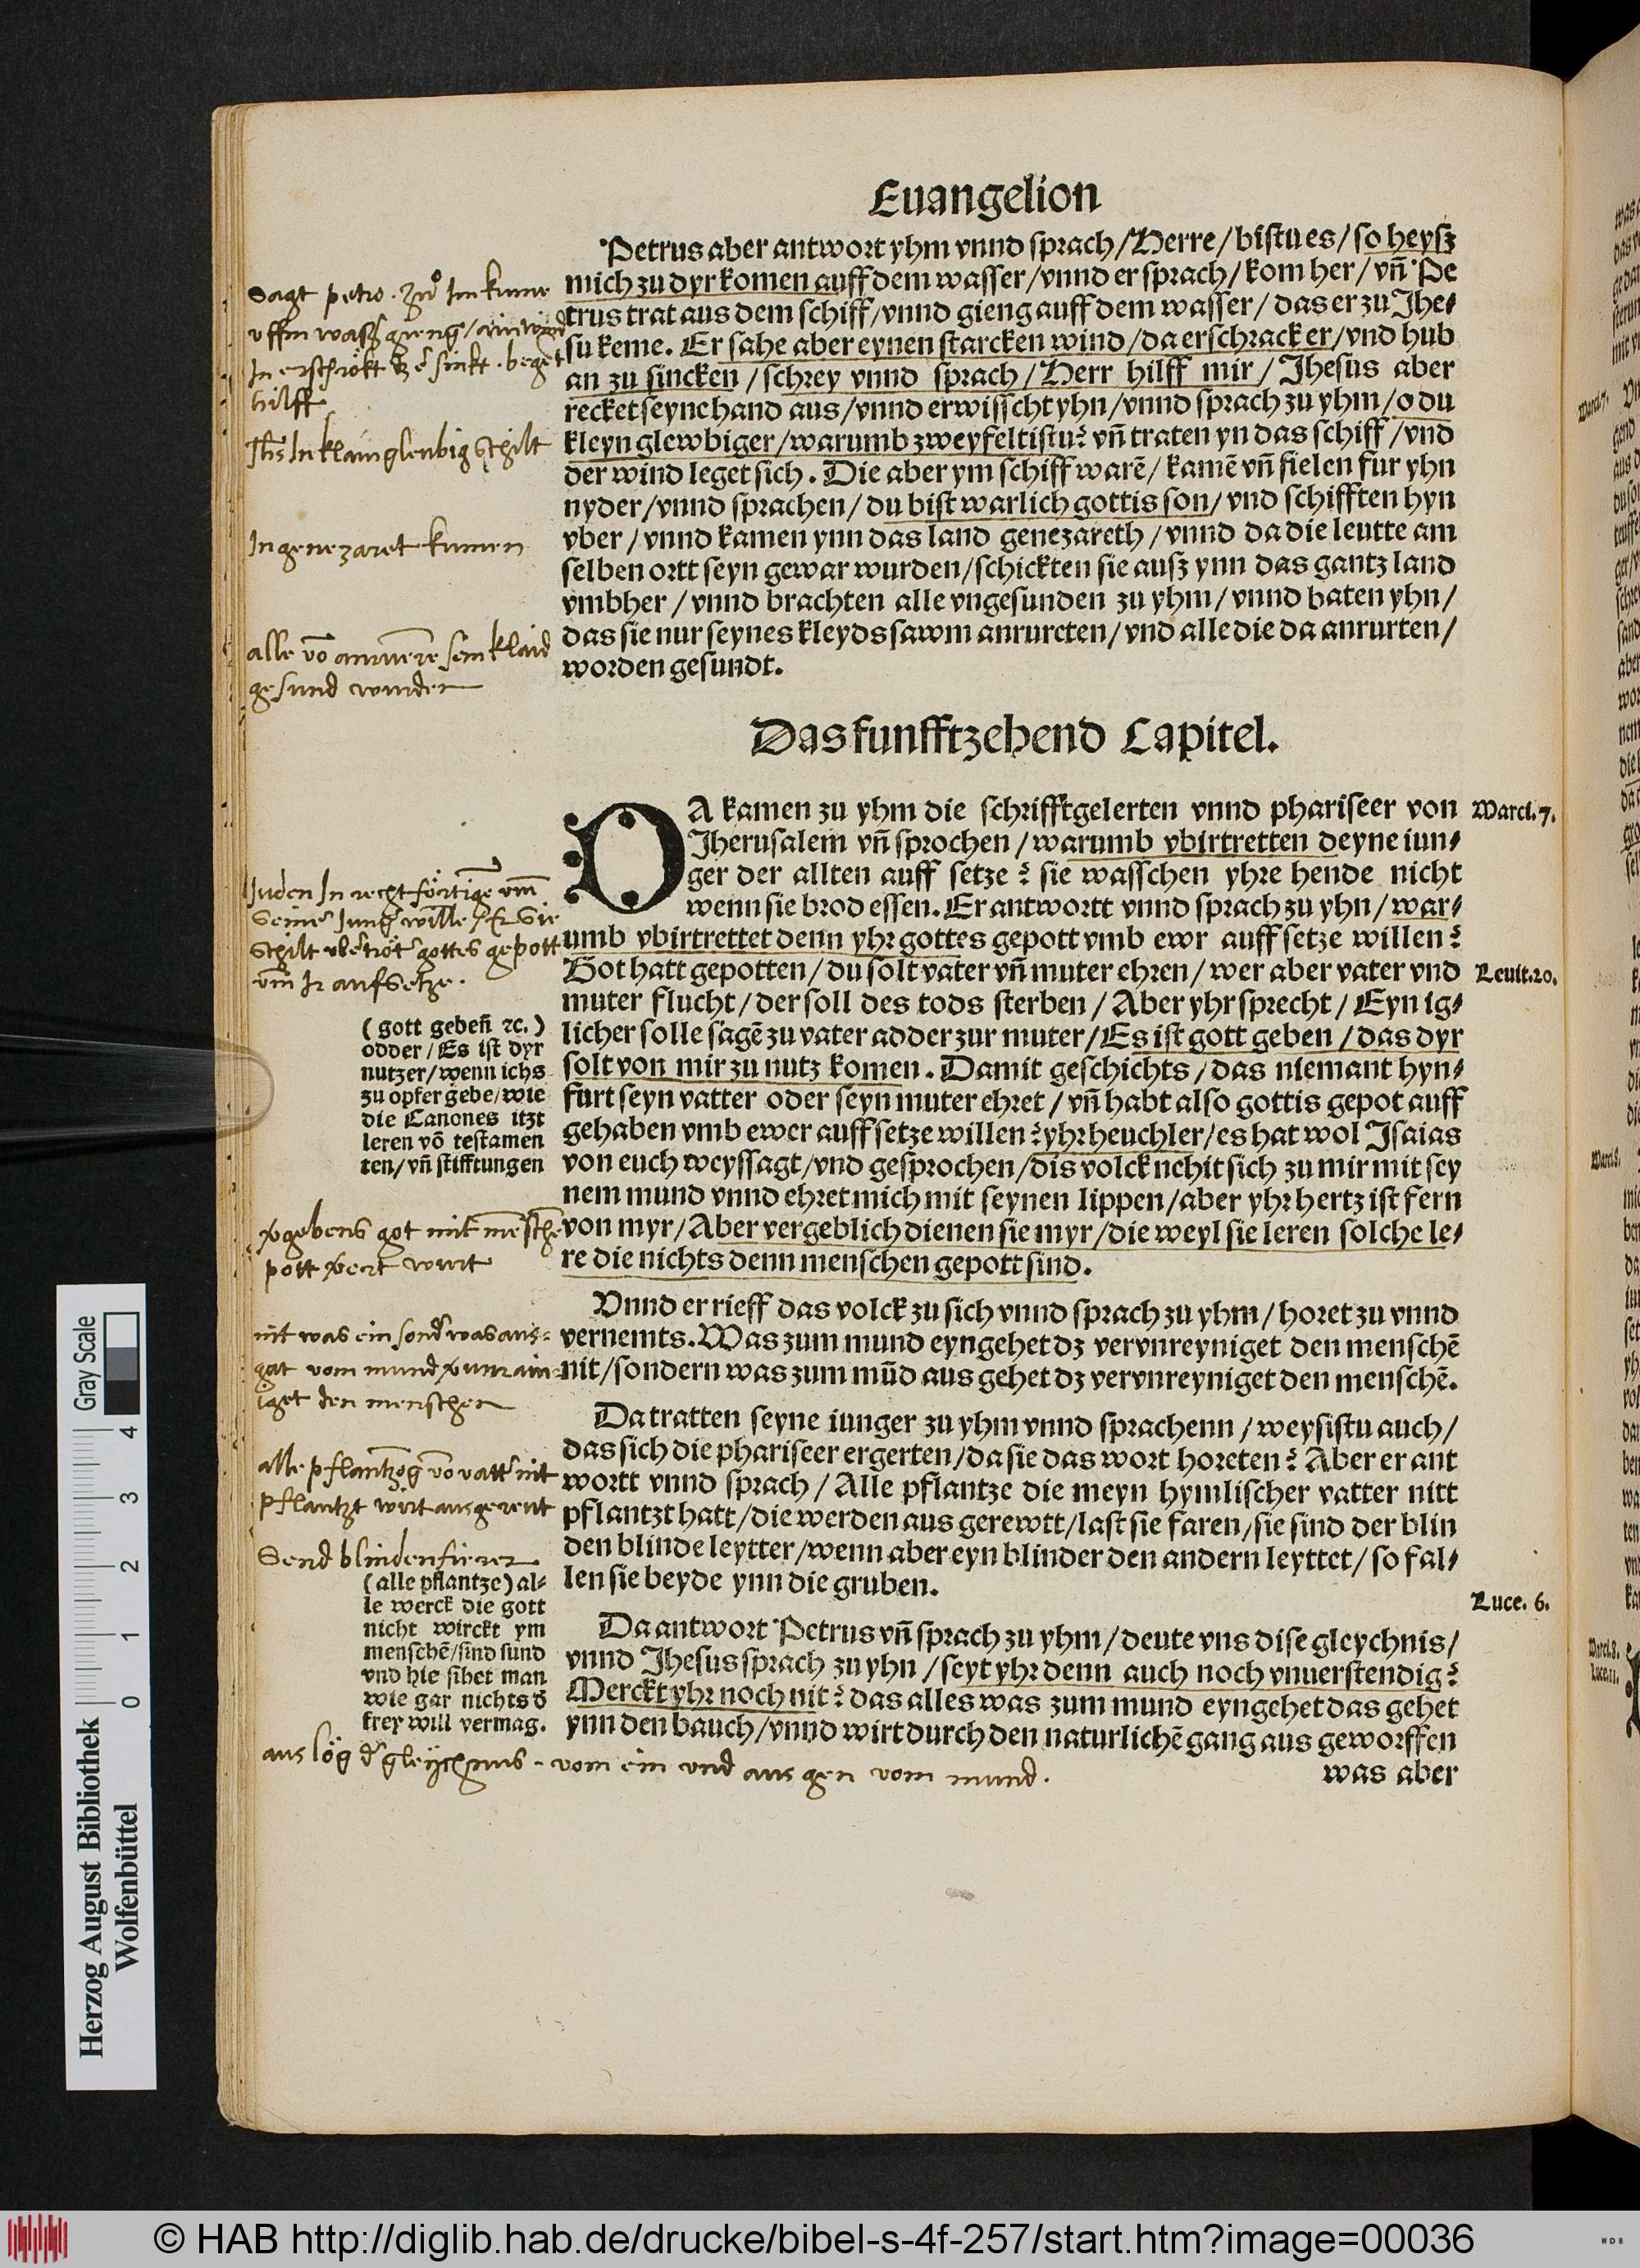 Euangelion
Petrus aber antwort yhm vnnd sprach/Herre/bistu es/so heysz
mich zu dyr komen auff dem wasser/vnnd er sprach/kom her/vñ Pe
trus trat aus dem schiff/vnnd gieng auff dem wasser/das er zu Jhe⸗
su keme. Er sahe aber eynen starcken wind/da erschrack er/vnd hub
an zu sincken/schrey vnnd sprach/Herr hilff mir/Jhesus aber
recket seyne hand aus/vnnd erwisscht yhn/vnnd sprach zu yhm/o du
kleyn glewbiger/warumb zweyfeltistu? vñ traten yn das schiff/vnd
der wind leget sich. Die aber ym schiff warē/kamē vñ fielen fur yhn
nyder/vnnd sprachen/du bist warlich gottis son/vnd schifften hyn
vber/vnnd kamen ynn das land genezareth/vnnd da die leutte am
selben ortt seyn gewar wurden/schickten sie ausz ynn das gantz land
vmbher/vnnd brachten alle vngesunden zu yhm/vnnd baten yhn/
das sie nur seynes kleyds sawm anrurcten/vnd alle die da anrurten/
worden gesundt.
Sagt petro. zů Im kume
In erschrökt
hilff
In genezaret kumen
gesund wurden
Das funfftzehend Capitel.
DA kamen zu yhm die schrifftgelerten vnnd phariseer von
Jherusalem vñ sprochen/warumb vbirtretten deyne iun⸗
ger der allten auff setze? sie wasschen yhre hende nicht
wenn sie brod essen. Er antwortt vnnd sprach zu yhn/war⸗
umb vbirtrettet denn yhr gottes gepott vmb ewr auff setze willen?
Got hatt gepotten/du solt vater vñ muter ehren/wer aber vater vnd
muter flucht/der soll des tods sterben/Aber yhr sprecht/Eyn ig⸗
licher solle sagē zu vater adder zur muter/Es ist gott geben/das dyr
solt von mir zu nutz komen. Damit geschichts/das niemant hyn⸗
furt seyn vatter oder seyn muter ehret/vñ habt also gottis gepot auff
gehaben vmb ewer auff setze willen? yhr heuchler/es hat wol Isaias
von euch weyssagt/vnd gesprochen/dis volck nehit sich zu mir mit sey
nem mund vnnd ehret mich mit seynen lippen/aber yhr hertz ist fern
von myr/Aber vergeblich dienen sie myr/die weyl sie leren solche le⸗
re die nichts denn menschen gepott sind.
Marci. 7.
Leuit. 20.
gottes gepott
vm̄ Ir aufsetze.
(gott gebeñ ꝛc.)
odder/Es ist dyr
nutzer/wenn ichs
zu opfer gebe/wie
die Canones itzt
leren vō testamen
ten/vñ stifftungen
Vnnd er rieff das volck zu sich vnnd sprach zu yhm/horet zu vnnd
vernemts. Was zum mund eyngehet dz vervnreyniget den menschē
nit/sondern was zum mūd aus gehet dz vervnreyniget den menschē.
iget den menschen
Da tratten seyne iunger zu yhm vnnd sprachenn/weysistu auch/
das sich die phariseer ergerten/da sie das wort horeten? Aber er ant
wortt vnnd sprach/Alle pflantze die meyn hymlischer vatter nitt
pflantzt hatt/die werden aus gerewtt/last sie faren/sie sind der blin
den blinde leytter/wenn aber eyn blinder den andern leyttet/so fal⸗
len sie beyde ynn die gruben.
pflantzt wirt ausgereut
Send blinden fierer
(alle pflantze) al⸗
le werck die gott
nicht wirckt ym
menschē/sind sund
vnd hie sihet man
wie gar nichts d̄
frey will vermag.
Luce. 6.
Da antwort Petrus vñ sprach zu yhm/deute vns dise gleychnis/
vnnd Jhesus sprach zu yhn/seyt yhr denn auch noch vnuerstendig?
Merckt yhr noch nit? das alles was zum mund eyngehet das gehet
ynn den bauch/vnnd wirt durch den naturlichē gang aus geworffen
was aber
vom ein vnd aus gen vom mund.
Gray Scale
4 3 2 1 0
Herzog August Bibliothek
Wolfenbüttel
© HAB http://diglib.hab.de/drucke/bibel-s-4f-257/start.htm?image=00036